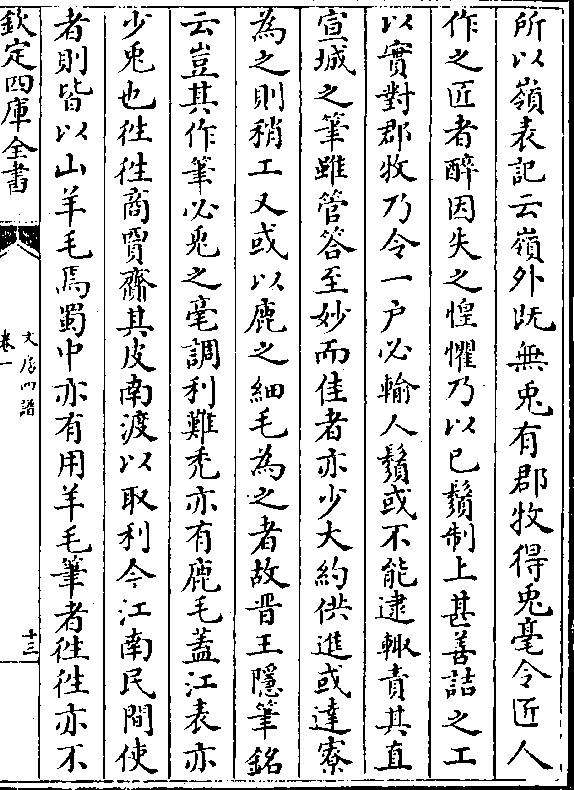 所以嶺表記云嶺外既無兎有郡牧得兎毫令匠人
作之匠者醉因失之惶懼乃以已鬚制上甚善詰之工
以實對郡牧乃令一户必輸人鬚或不能逮輙責其直
宣城之筆雖管答至妙而佳者亦少大約供進或達寮
為之則稍工又或以鹿之細毛為之者故晋王隱筆銘
云豈其作筆必兎之毫調利難秃亦有鹿毛蓋江表亦
少兎也徃徃商賈齎其皮南渡以取利今江南民間使
者則皆以山羊毛焉蜀中亦有用羊毛筆者徃徃亦不
欽定四庫全書
文房四譜
卷一
十三